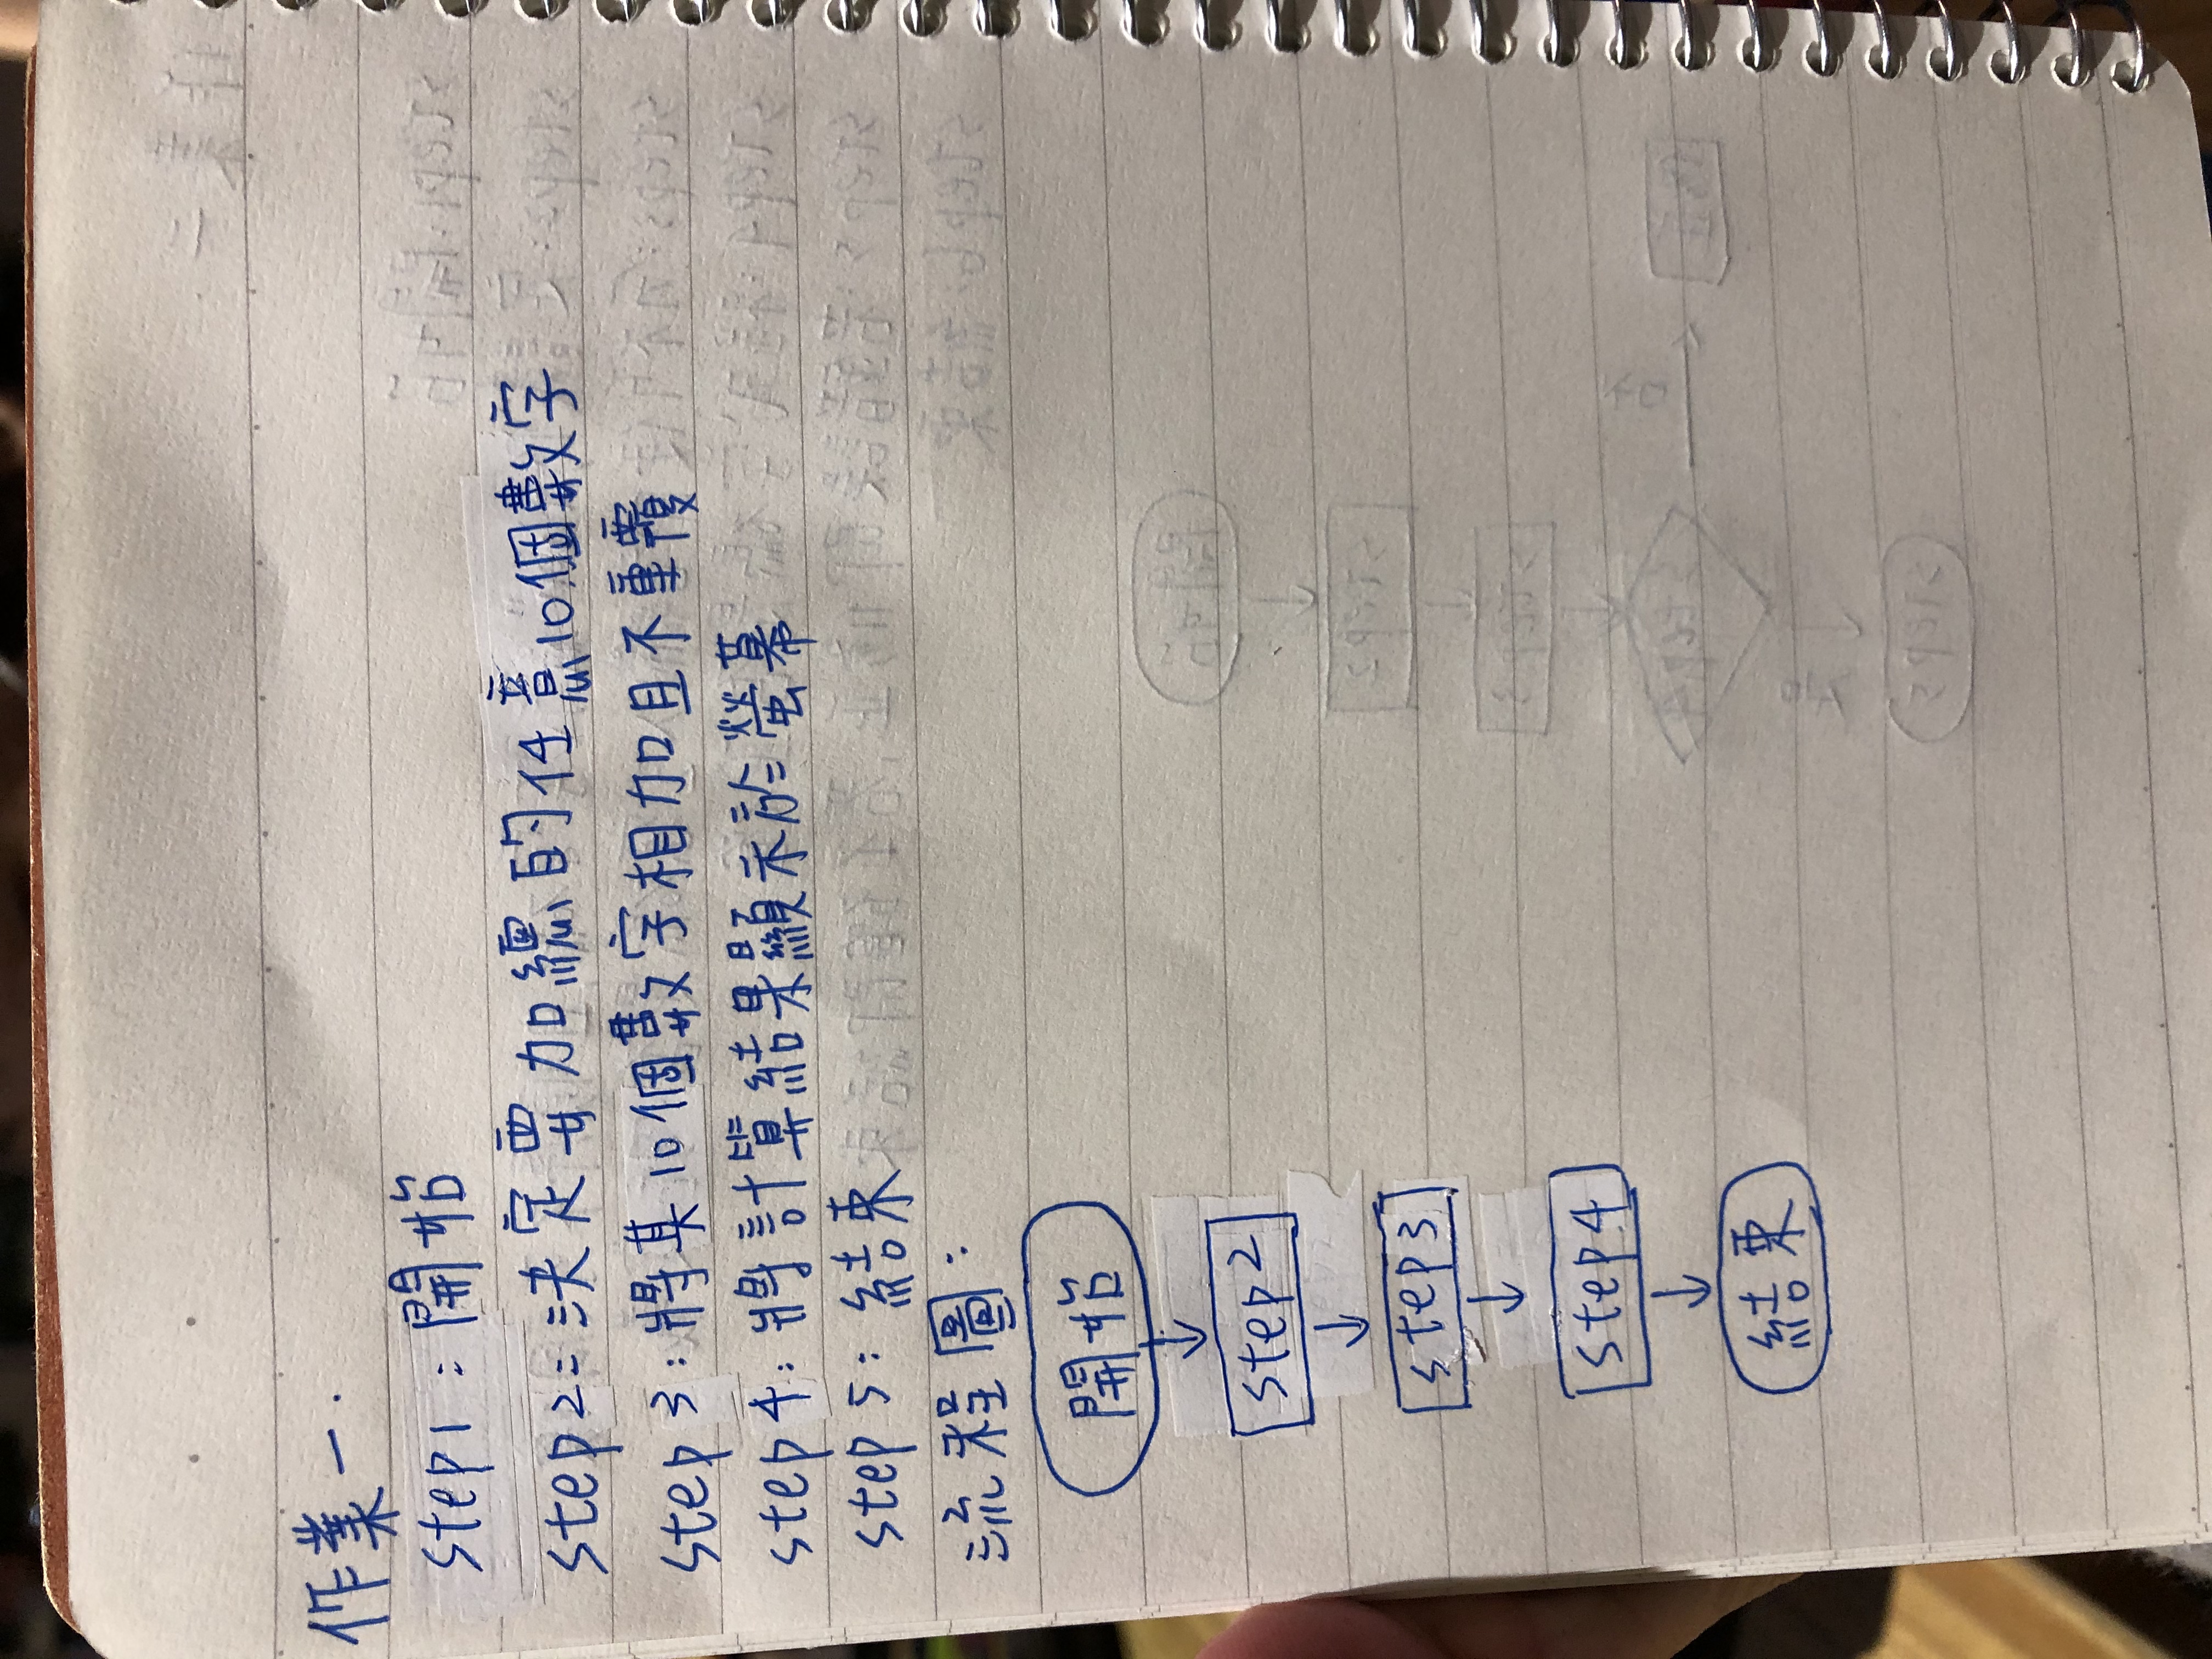 作業一.
step1:開始
step2:決定要加總的任意10個數字
step3:將其10個數字相加且不重覆
step4:將計算結果顯示於螢幕
step5:結束
流程圖:
開始
step2
step3
step4
結束